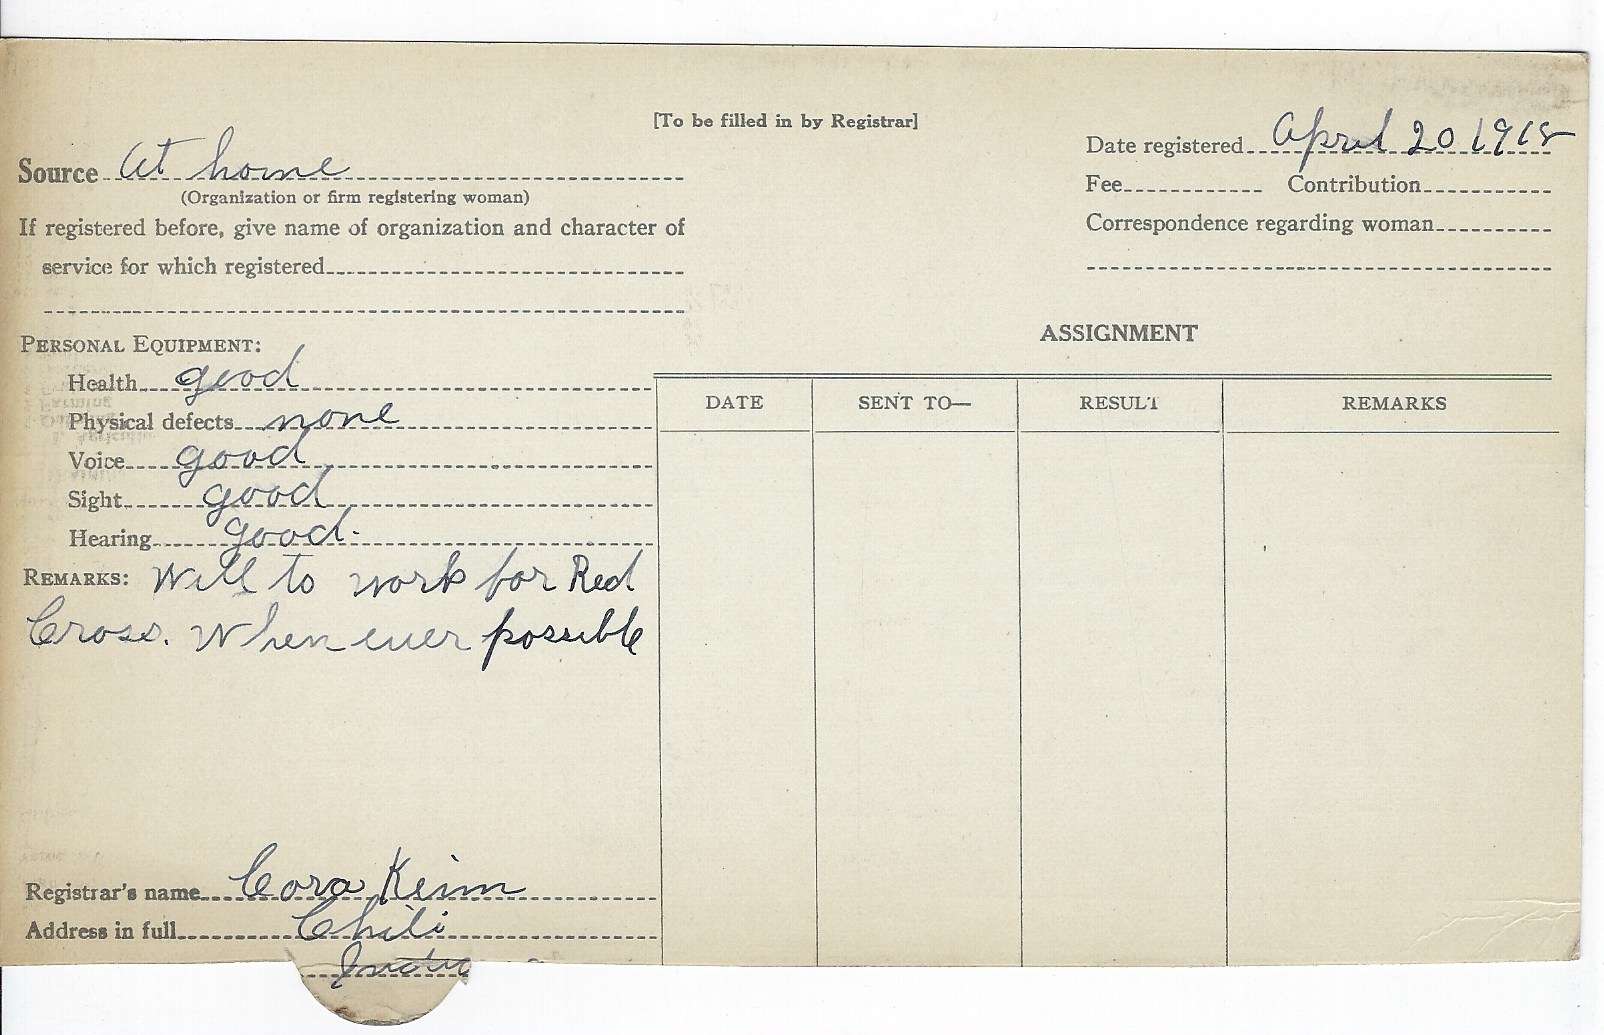 [To be filled in by Registrar]
Source At home
(Organization or firm registering woman)
If registered before, give name of organization and character of
service for which registered
Date registered April 20 1918
Fee Contribution
Correspondence regarding woman
PERSONAL EQUIPMENT:
Health good
Physical defects none
Voice good
Sight good
Hearing good.
REMARKS: Will to work for Red
Cross. When ever possible
Registrar's name Cora Keim
Address in full Chili
ASSIGNMENT
DATE SENT TO— RESULT REMARKS